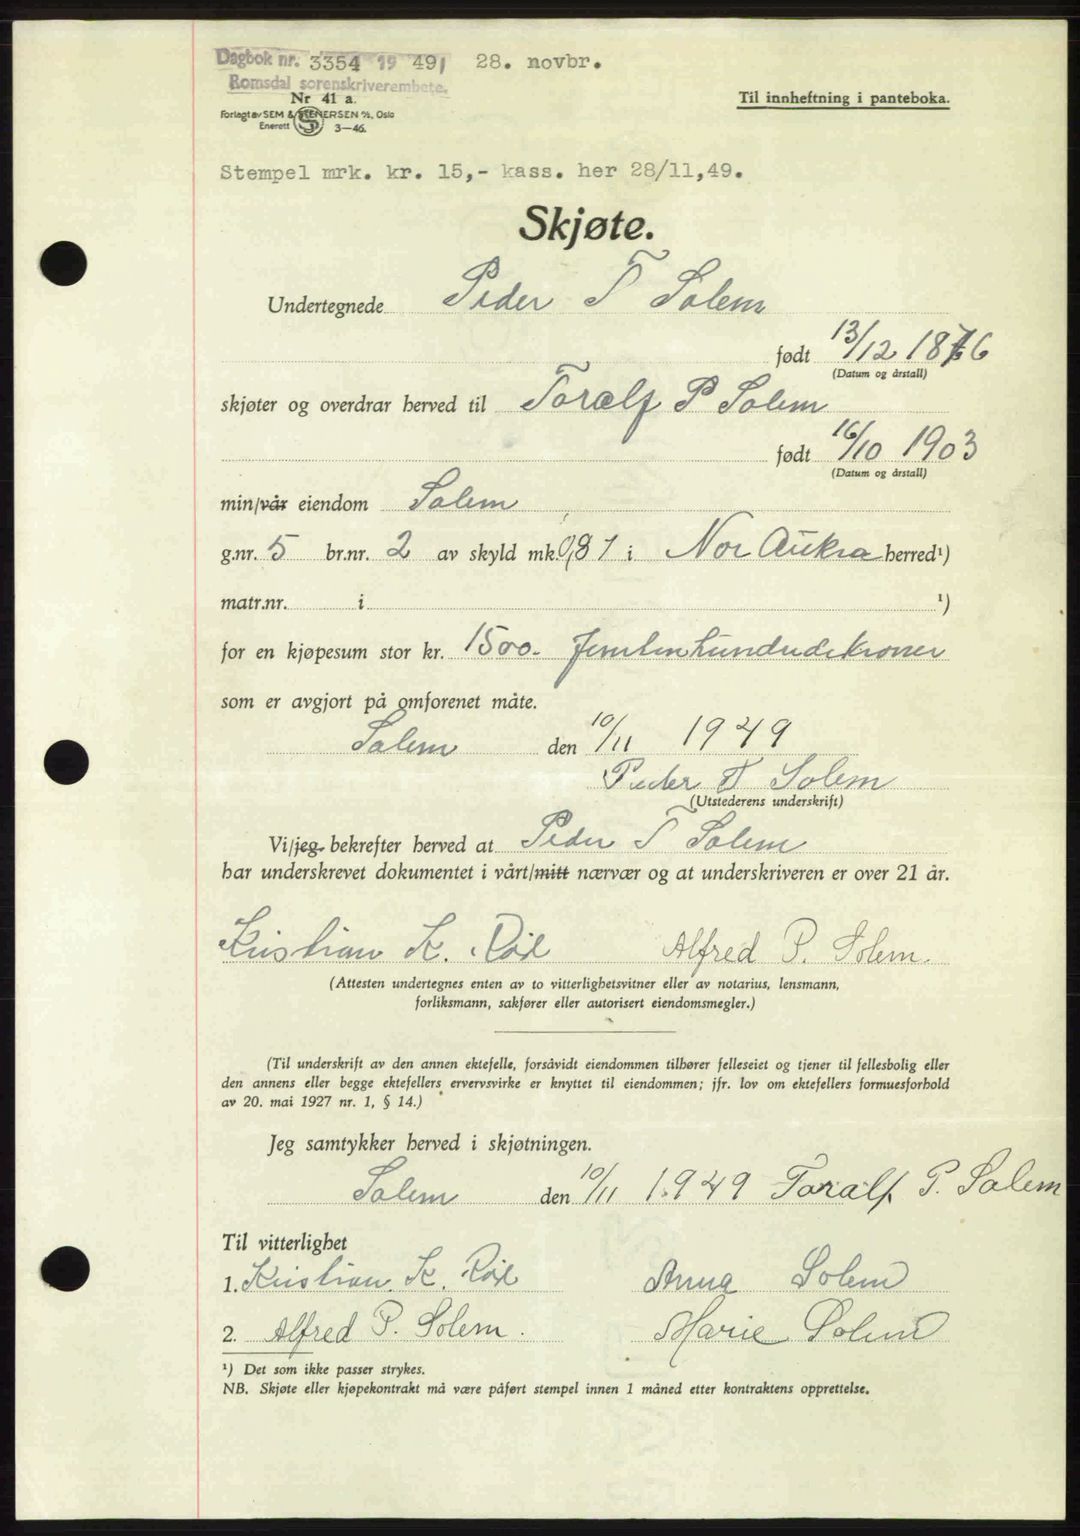 Dagbok nr. 3354 19 49, 28. novbr.
Romsdal sorenskriverembete.
Nr 41 a.
Til innheftning i panteboka.
Forlagt av SEM & STENERSEN A/S, Oslo
Enerett 3-46.
Stempel mrk. kr. 15,- kass. her 28/11,49.
Skjøte.
Undertegnede Peder T Solem
født 13/12 1876
(Datum og årstall)
skjøter og overdrar herved til Toralf P Solem
født 16/10 1903
(Datum og årstall)
min/vår eiendom Solem
g.nr. 5 br.nr. 2 av skyld mk. 0,81 i Nor Aukra herred¹)
matr.nr. i ¹)
for en kjøpesum stor kr. 1500.- femtenhundrede kroner
som er avgjort på omforenet måte.
Solem den 10/11 1949
Peder T Solem
(Utstederens underskrift)
Vi/jeg bekrefter herved at Peder T Solem
har underskrevet dokumentet i vårt/mitt nærvær og at underskriveren er over 21 år.
Kristian K. Röd Alfred P. Solem.
(Attesten undertegnes enten av to vitterlighetsvitner eller av notarius, lensmann,
forliksmann, sakfører eller autorisert eiendomsmegler.)
(Til underskrift av den annen ektefelle, forsåvidt eiendommen tilhører felleseiet og tjener til fellesbolig eller
den annens eller begge ektefellers ervervsvirke er knyttet til eiendommen; jfr. lov om ektefellers formuesforhold
av 20. mai 1927 nr. 1, § 14.)
Jeg samtykker herved i skjøtningen.
Solem den 10/11 1949 Toralf P. Solem
Til vitterlighet
1. Kristian K. Röd Anna Solem
2. Alfred P. Solem. Marie Solem
¹) Det som ikke passer strykes.
NB. Skjøte eller kjøpekontrakt må være påført stempel innen 1 måned etter kontraktens opprettelse.